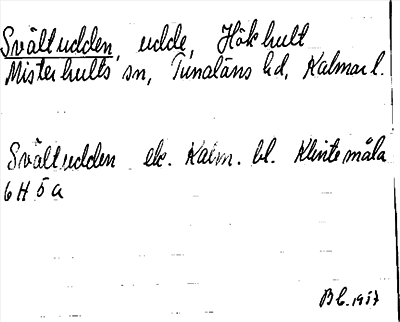 Svältudden, udde, Hökhult
Misterhults sn, Tunaläns hd, Kalmar l.
Svältudden ek. Kalm. bl. Klintemåla
6H5a
1957